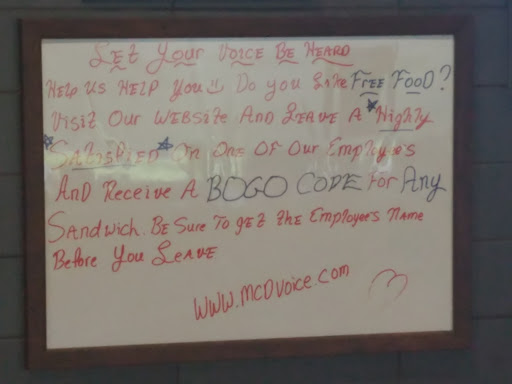 Let Your Voice Be Heard
Help Us Help You Do You Like Free Food?
Visit Our Website And Leave A *Highly
Satisfied* On One Of Our Employees
And Receive A BOGO CODE For Any
Sandwich. Be Sure To get the Employee's name
Before You Leave
WWW.McDvoice.com